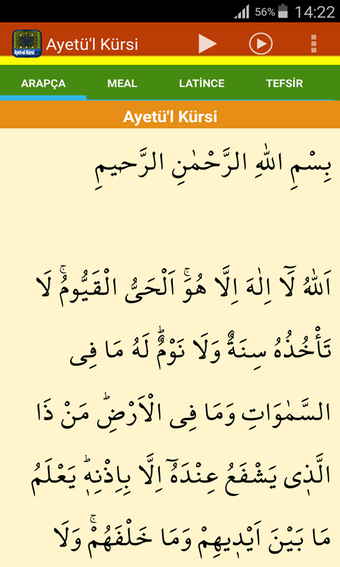 56% 14:22
Ayetü'l Kürsi
ARAPÇA MEAL LATİNCE TEFSİR
Ayetü'l Kürsi
بِسْمِ اللهِ الرَّحْمٰنِ الرَّحيمِ
اَللهُ لَٓا اِلٰهَ اِلَّا هُوَۚ اَلْحَىُّ الْقَيُّومُۚ لَا
تَأْخُذُهُ سِنَةٌ وَلَا نَوْمٌۜ لَهُ مَا فِى
السَّمٰوَاتِ وَمَا فِى الْاَرْضِۜ مَنْ ذَا
الَّذٖى يَشْفَعُ عِنْدَهُٓ اِلَّا بِاِذْنِهٖۜ يَعْلَمُ
مَا بَيْنَ اَيْدٖيهِمْ وَمَا خَلْفَهُمْۚ وَلَا